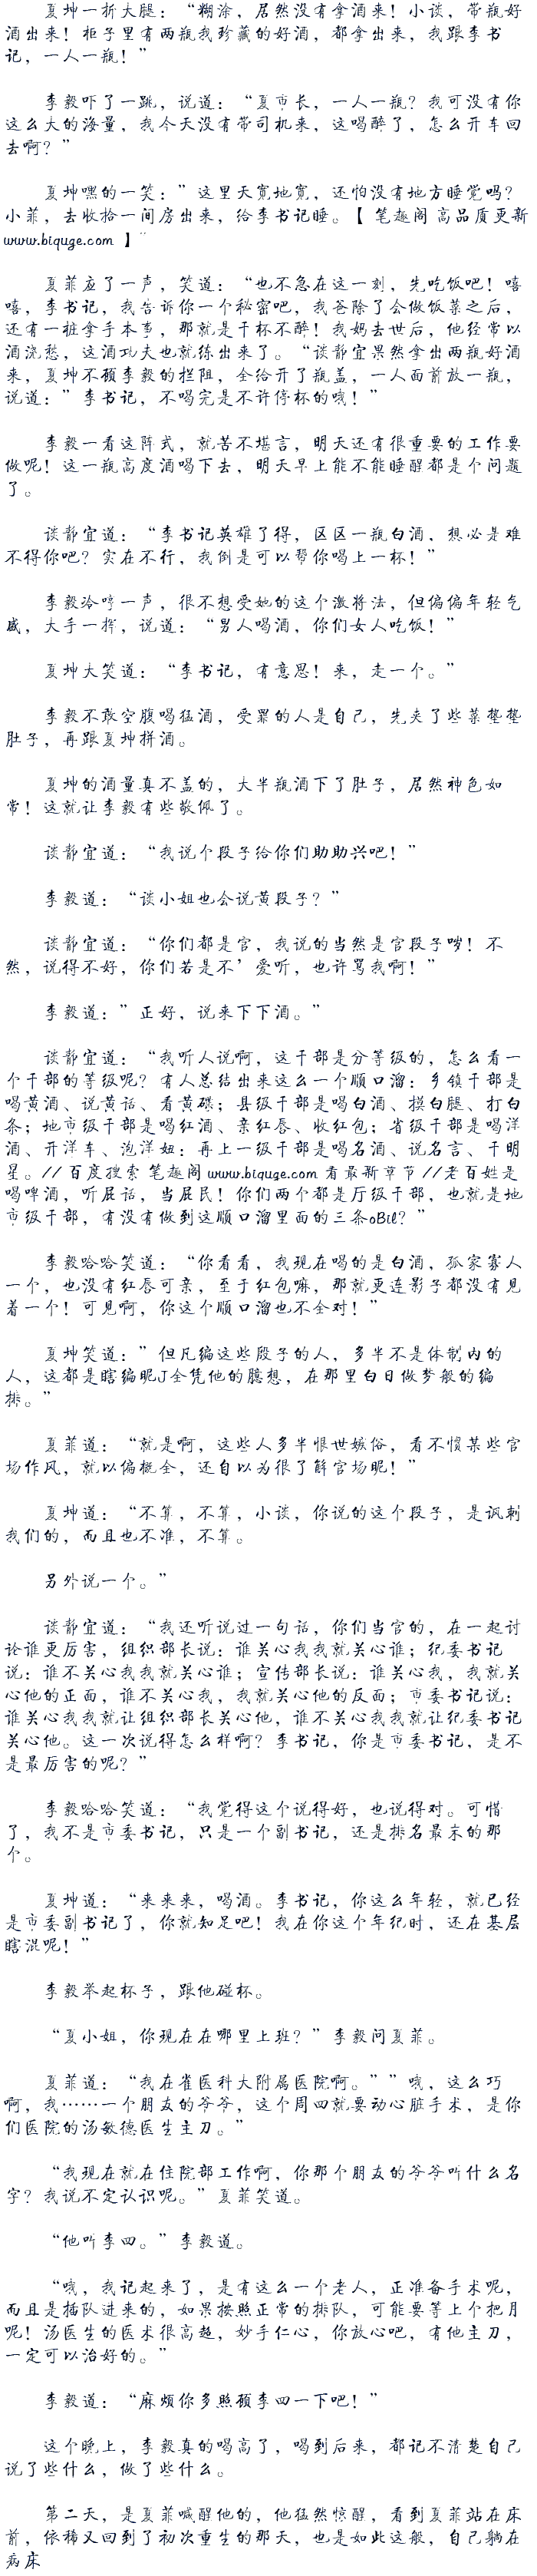 夏坤一折大腿：“糊涂，居然没有拿酒来！小谈，带瓶好
酒出来！柜子里有两瓶我珍藏的好酒，都拿出来，我跟李书
记，一人一瓶！”
李毅吓了一跳，说道：“夏市长，一人一瓶？我可没有你
这么大的海量，我今天没有带司机来，这喝醉了，怎么开车回
去啊？”
夏坤嘿的一笑：”这里天宽地宽，还怕没有地方睡觉吗？
小菲，去收拾一间房出来，给李书记睡。【 笔趣阁 高品质更新
www.biquge.com 】”
夏菲应了一声，笑道：“也不急在这一刻，先吃饭吧！嘻
嘻，李书记，我告诉你一个秘密吧，我爸除了会做饭菜之后，
还有一桩拿手本事，那就是千杯不醉！我妈去世后，他经常以
酒浇愁，这酒功夫也就练出来了。“谈静宜果然拿出两瓶好酒
来，夏坤不顾李毅的拦阻，全给开了瓶盖，一人面前放一瓶，
说道：”李书记，不喝完是不许停杯的哦！”
李毅一看这阵式，就苦不堪言，明天还有很重要的工作要
做呢！这一瓶高度酒喝下去，明天早上能不能睡醒都是个问题
了。
谈静宜道：“李书记英雄了得，区区一瓶白酒，想必是难
不得你吧？实在不行，我倒是可以帮你喝上一杯！”
李毅冷哼一声，很不想受她的这个激将法，但偏偏年轻气
盛，大手一挥，说道：“男人喝酒，你们女人吃饭！”
夏坤大笑道：“李书记，有意思！来，走一个。”
李毅不敢空腹喝猛酒，受罪的人是自己，先夹了些菜垫垫
肚子，再跟夏坤拼酒。
夏坤的酒量真不盖的，大半瓶酒下了肚子，居然神色如
常！这就让李毅有些敬佩了。
谈静宜道：“我说个段子给你们助助兴吧！”
李毅道：“谈小姐也会说黄段子？”
谈静宜道：“你们都是官，我说的当然是官段子啰！不
然，说得不好，你们若是不’爱听，也许骂我啊！”
李毅道：”正好，说来下下酒。”
谈静宜道：“我听人说啊，这干部是分等级的，怎么看一
个干部的等级呢？有人总结出来这么一个顺口溜：乡镇干部是
喝黄酒、说黄话、看黄碟；县级干部是喝白酒、摸白腿、打白
条；地市级干部是喝红酒、亲红唇、收红包；省级干部是喝洋
酒、开洋车、泡洋妞：再上一级干部是喝名酒、说名言、干明
星。//百度搜索 笔趣阁 www.biquge.com 看最新章节//老百姓是
喝啤酒，听屁话，当屁民！你们两个都是厅级干部，也就是地
市级干部，有没有做到这顺口溜里面的三条oBil？”
李毅哈哈笑道：“你看看，我现在喝的是白酒，孤家寡人
一个，也没有红唇可亲，至于红包嘛，那就更连影子都没有见
着一个！可见啊，你这个顺口溜也不全对！”
夏坤笑道：”但凡编这些段子的人，多半不是体制内的
人，这都是瞎编昵J全凭他的臆想，在那里白日做梦般的编
排。”
夏菲道：“就是啊，这些人多半恨世嫉俗，看不惯某些官
场作风，就以偏概全，还自以为很了解官场昵！”
夏坤道：“不算，不算，小谈，你说的这个段子，是讽刺
我们的，而且也不准，不算。
另外说一个。”
谈静宜道：“我还听说过一句话，你们当官的，在一起讨
论谁更厉害，组织部长说：谁关心我我就关心谁；纪委书记
说：谁不关心我我就关心谁；宣传部长说：谁关心我，我就关
心他的正面，谁不关心我，我就关心他的反面；市委书记说：
谁关心我我就让组织部长关心他，谁不关心我我就让纪委书记
关心他。这一次说得怎么样啊？李书记，你是市委书记，是不
是最厉害的呢？”
李毅哈哈笑道：“我觉得这个说得好，也说得对。可惜
了，我不是市委书记，只是一个副书记，还是排名最末的那
个。
夏坤道：“来来来，喝酒。李书记，你这么年轻，就已经
是市委副书记了，你就知足吧！我在你这个年纪时，还在基层
瞎混呢！”
李毅举起杯子，跟他碰杯。
“夏小姐，你现在在哪里上班？”李毅问夏菲。
夏菲道：“我在省医科大附属医院啊。””哦，这么巧
啊，我……一个朋友的爷爷，这个周四就要动心脏手术，是你
们医院的汤敏德医生主刀。”
“我现在就在住院部工作啊，你那个朋友的爷爷听什么名
字？我说不定认识呢。”夏菲笑道。
“他听李四。”李毅道。
“哦，我记起来了，是有这么一个老人，正准备手术呢，
而且是插队进来的，如果按照正常的排队，可能要等上个把月
呢！汤医生的医术很高超，妙手仁心，你放心吧，有他主刀，
一定可以治好的。”
李毅道：“麻烦你多照顾李四一下吧！”
这个晚上，李毅真的喝高了，喝到后来，都记不清楚自己
说了些什么，做了些什么。
第二天，是夏菲喊醒他的，他猛然惊醒，看到夏菲站在床
前，依稀又回到了初次重生的那天，也是如此这般，自己躺在
病床